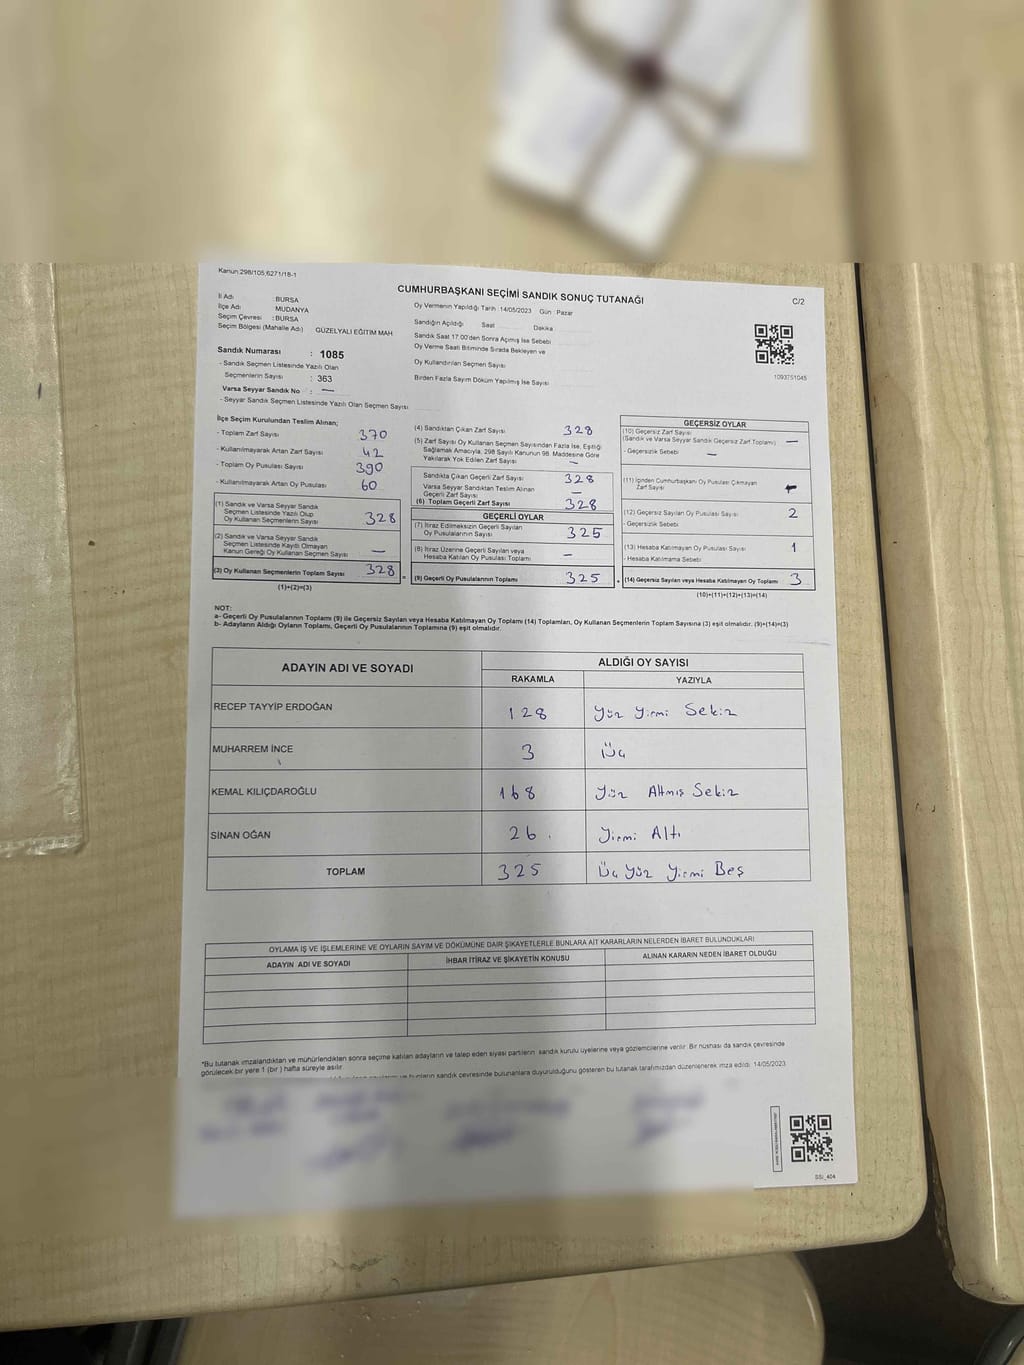 Kanun:298/105,6271/18-1
CUMHURBAŞKANI SEÇİMİ SANDIK SONUÇ TUTANAĞI
C/2
İl Adı : BURSA
İlçe Adı : MUDANYA
Seçim Çevresi : BURSA
Seçim Bölgesi (Mahalle Adı) GÜZELYALI EĞİTİM MAH
Sandık Numarası : 1085
- Sandık Seçmen Listesinde Yazılı Olan
Seçmenlerin Sayısı : 363
Varsa Seyyar Sandık No : —
- Seyyar Sandık Seçmen Listesinde Yazılı Olan Seçmen Sayısı
Oy Vermenin Yapıldığı Tarih :14/05/2023 Gün : Pazar
Sandığın Açıldığı Saat Dakika
Sandık Saat 17.00'den Sonra Açımış İse Sebebi
Oy Verme Saati Bitiminde Sırada Bekleyen ve
Oy Kullandırılan Seçmen Sayısı
Birden Fazla Sayım Döküm Yapılmış İse Sayısı
1093751045
İlçe Seçim Kurulundan Teslim Alınan;
- Toplam Zarf Sayısı 370
- Kullanılmayarak Artan Zarf Sayısı 42
- Toplam Oy Pusulası Sayısı 390
- Kullanılmayarak Artan Oy Pusulası 60
(1) Sandık ve Varsa Seyyar Sandık
Seçmen Listesinde Yazılı Olup
Oy Kullanan Seçmenlerin Sayısı 328
(2) Sandık ve Varsa Seyyar Sandık
Seçmen Listesinde Kayıtlı Olmayan
Kanun Gereği Oy Kullanan Seçmen Sayısı —
(3) Oy Kullanan Seçmenlerin Toplam Sayısı 328
(1)+(2)=(3)
(4) Sandıktan Çıkan Zarf Sayısı 328
(5) Zarf Sayısı Oy Kullanan Seçmen Sayısından Fazla İse, Eşitliği
Sağlamak Amacıyla, 298 Sayılı Kanunun 98. Maddesine Göre
Yakılarak Yok Edilen Zarf Sayısı —
Sandıkta Çıkan Geçerli Zarf Sayısı 328
Varsa Seyyar Sandıktan Teslim Alınan
Geçerli Zarf Sayısı —
(6) Toplam Geçerli Zarf Sayısı 328
GEÇERLİ OYLAR
(7) İtiraz Edilmeksizin Geçerli Sayılan
Oy Pusulalarının Sayısı 325
(8) İtiraz Üzerine Geçerli Sayılan veya
Hesaba Katılan Oy Pusulası Toplamı —
= (9) Geçerli Oy Pusulalarının Toplamı 325
GEÇERSİZ OYLAR
(10) Geçersiz Zarf Sayısı
(Sandık ve Varsa Seyyar Sandık Geçersiz Zarf Toplamı) —
- Geçersizlik Sebebi —
(11) İçinden Cumhurbaşkanı Oy Pusulası Çıkmayan
Zarf Sayısı
(12) Geçersiz Sayılan Oy Pusulası Sayısı 2
- Geçersizlik Sebebi
(13) Hesaba Katılmayan Oy Pusulası Sayısı 1
- Hesaba Katılmama Sebebi
+ (14) Geçersiz Sayılan veya Hesaba Katılmayan Oy Toplamı 3
(10)+(11)+(12)+(13)=(14)
NOT:
a- Geçerli Oy Pusulalarının Toplamı (9) ile Geçersiz Sayılan veya Hesaba Katılmayan Oy Toplamı (14) Toplamları, Oy Kullanan Seçmenlerin Toplam Sayısına (3) eşit olmalıdır. (9)+(14)=(3)
b- Adayların Aldığı Oyların Toplamı, Geçerli Oy Pusulalarının Toplamına (9) eşit olmalıdır.
ADAYIN ADI VE SOYADI ALDIĞI OY SAYISI
RAKAMLA YAZIYLA
RECEP TAYYİP ERDOĞAN 128 Yüz Yirmi Sekiz
MUHARREM İNCE 3 Üç
KEMAL KILIÇDAROĞLU 168 Yüz Altmış Sekiz
SİNAN OĞAN 26 Yirmi Altı
TOPLAM 325 Üç Yüz Yirmi Beş
OYLAMA İŞ VE İŞLEMLERİNE VE OYLARIN SAYIM VE DÖKÜMÜNE DAİR ŞİKAYETLERLE BUNLARA AİT KARARLARIN NELERDEN İBARET BULUNDUKLARI
ADAYIN ADI VE SOYADI İHBAR İTİRAZ VE ŞİKAYETİN KONUSU ALINAN KARARIN NEDEN İBARET OLDUĞU
*Bu tutanak imzalandıktan ve mühürlendikten sonra seçime katılan adayların ve talep eden siyasi partilerin sandık kurulu üyelerine veya gözlemcilerine verilir. Bir nüshası da sandık çevresinde
görülecek bir yere 1 (bir) hafta süreyle asılır.
sandık çevresinde bulunanlara duyurulduğunu gösteren bu tutanak tarafımızdan düzenlenerek imza edildi. 14/05/2023
SSİ_404